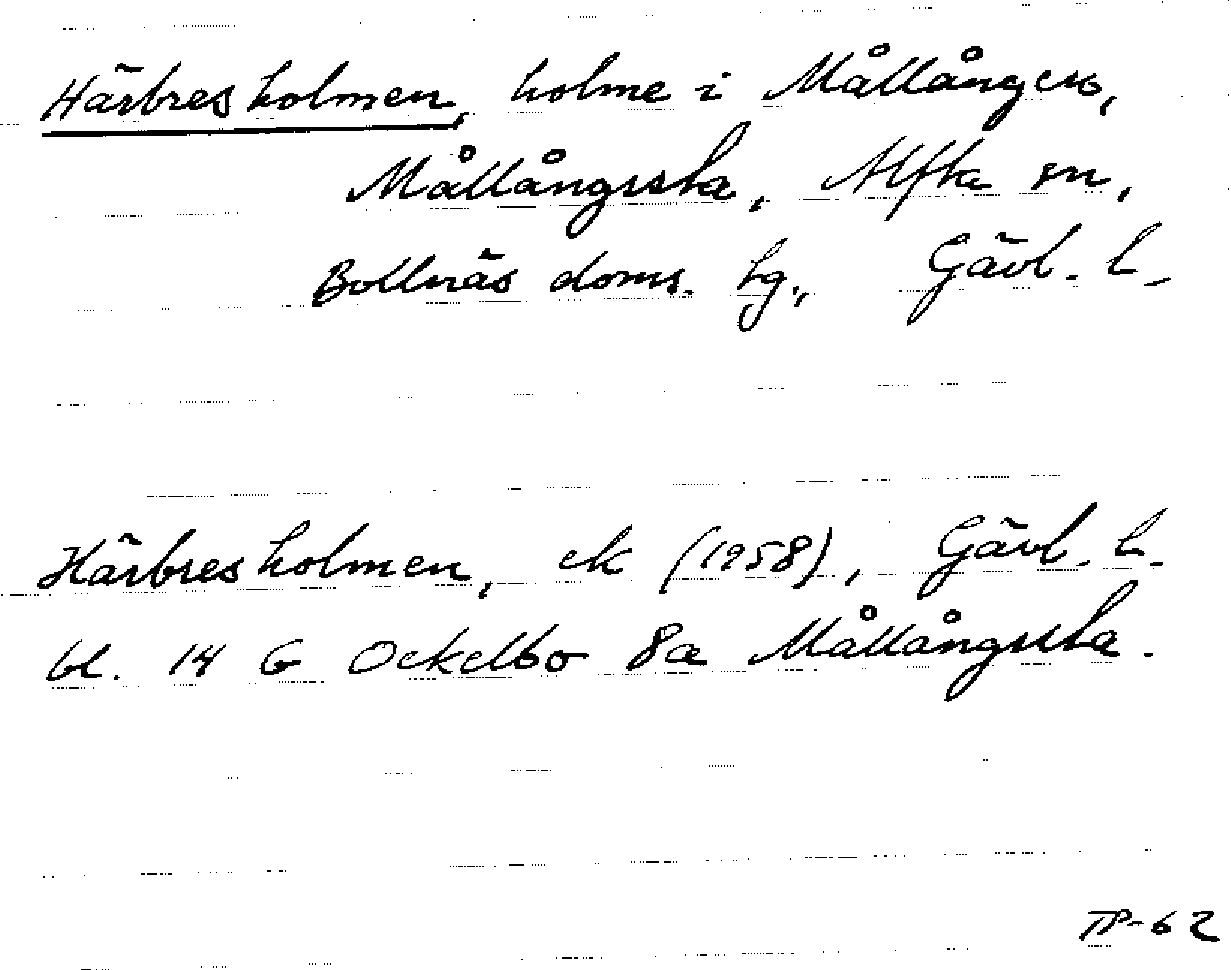 Härbresholmen, holme i Mållången,
Mållångsta, Alfta sn,
Bollnäs doms. hg., Gävl. l.
Härbresholmen, ek (1958), Gävl. l.
bl. 14 G Ockelbo 8a Mållångsta.
TP-62